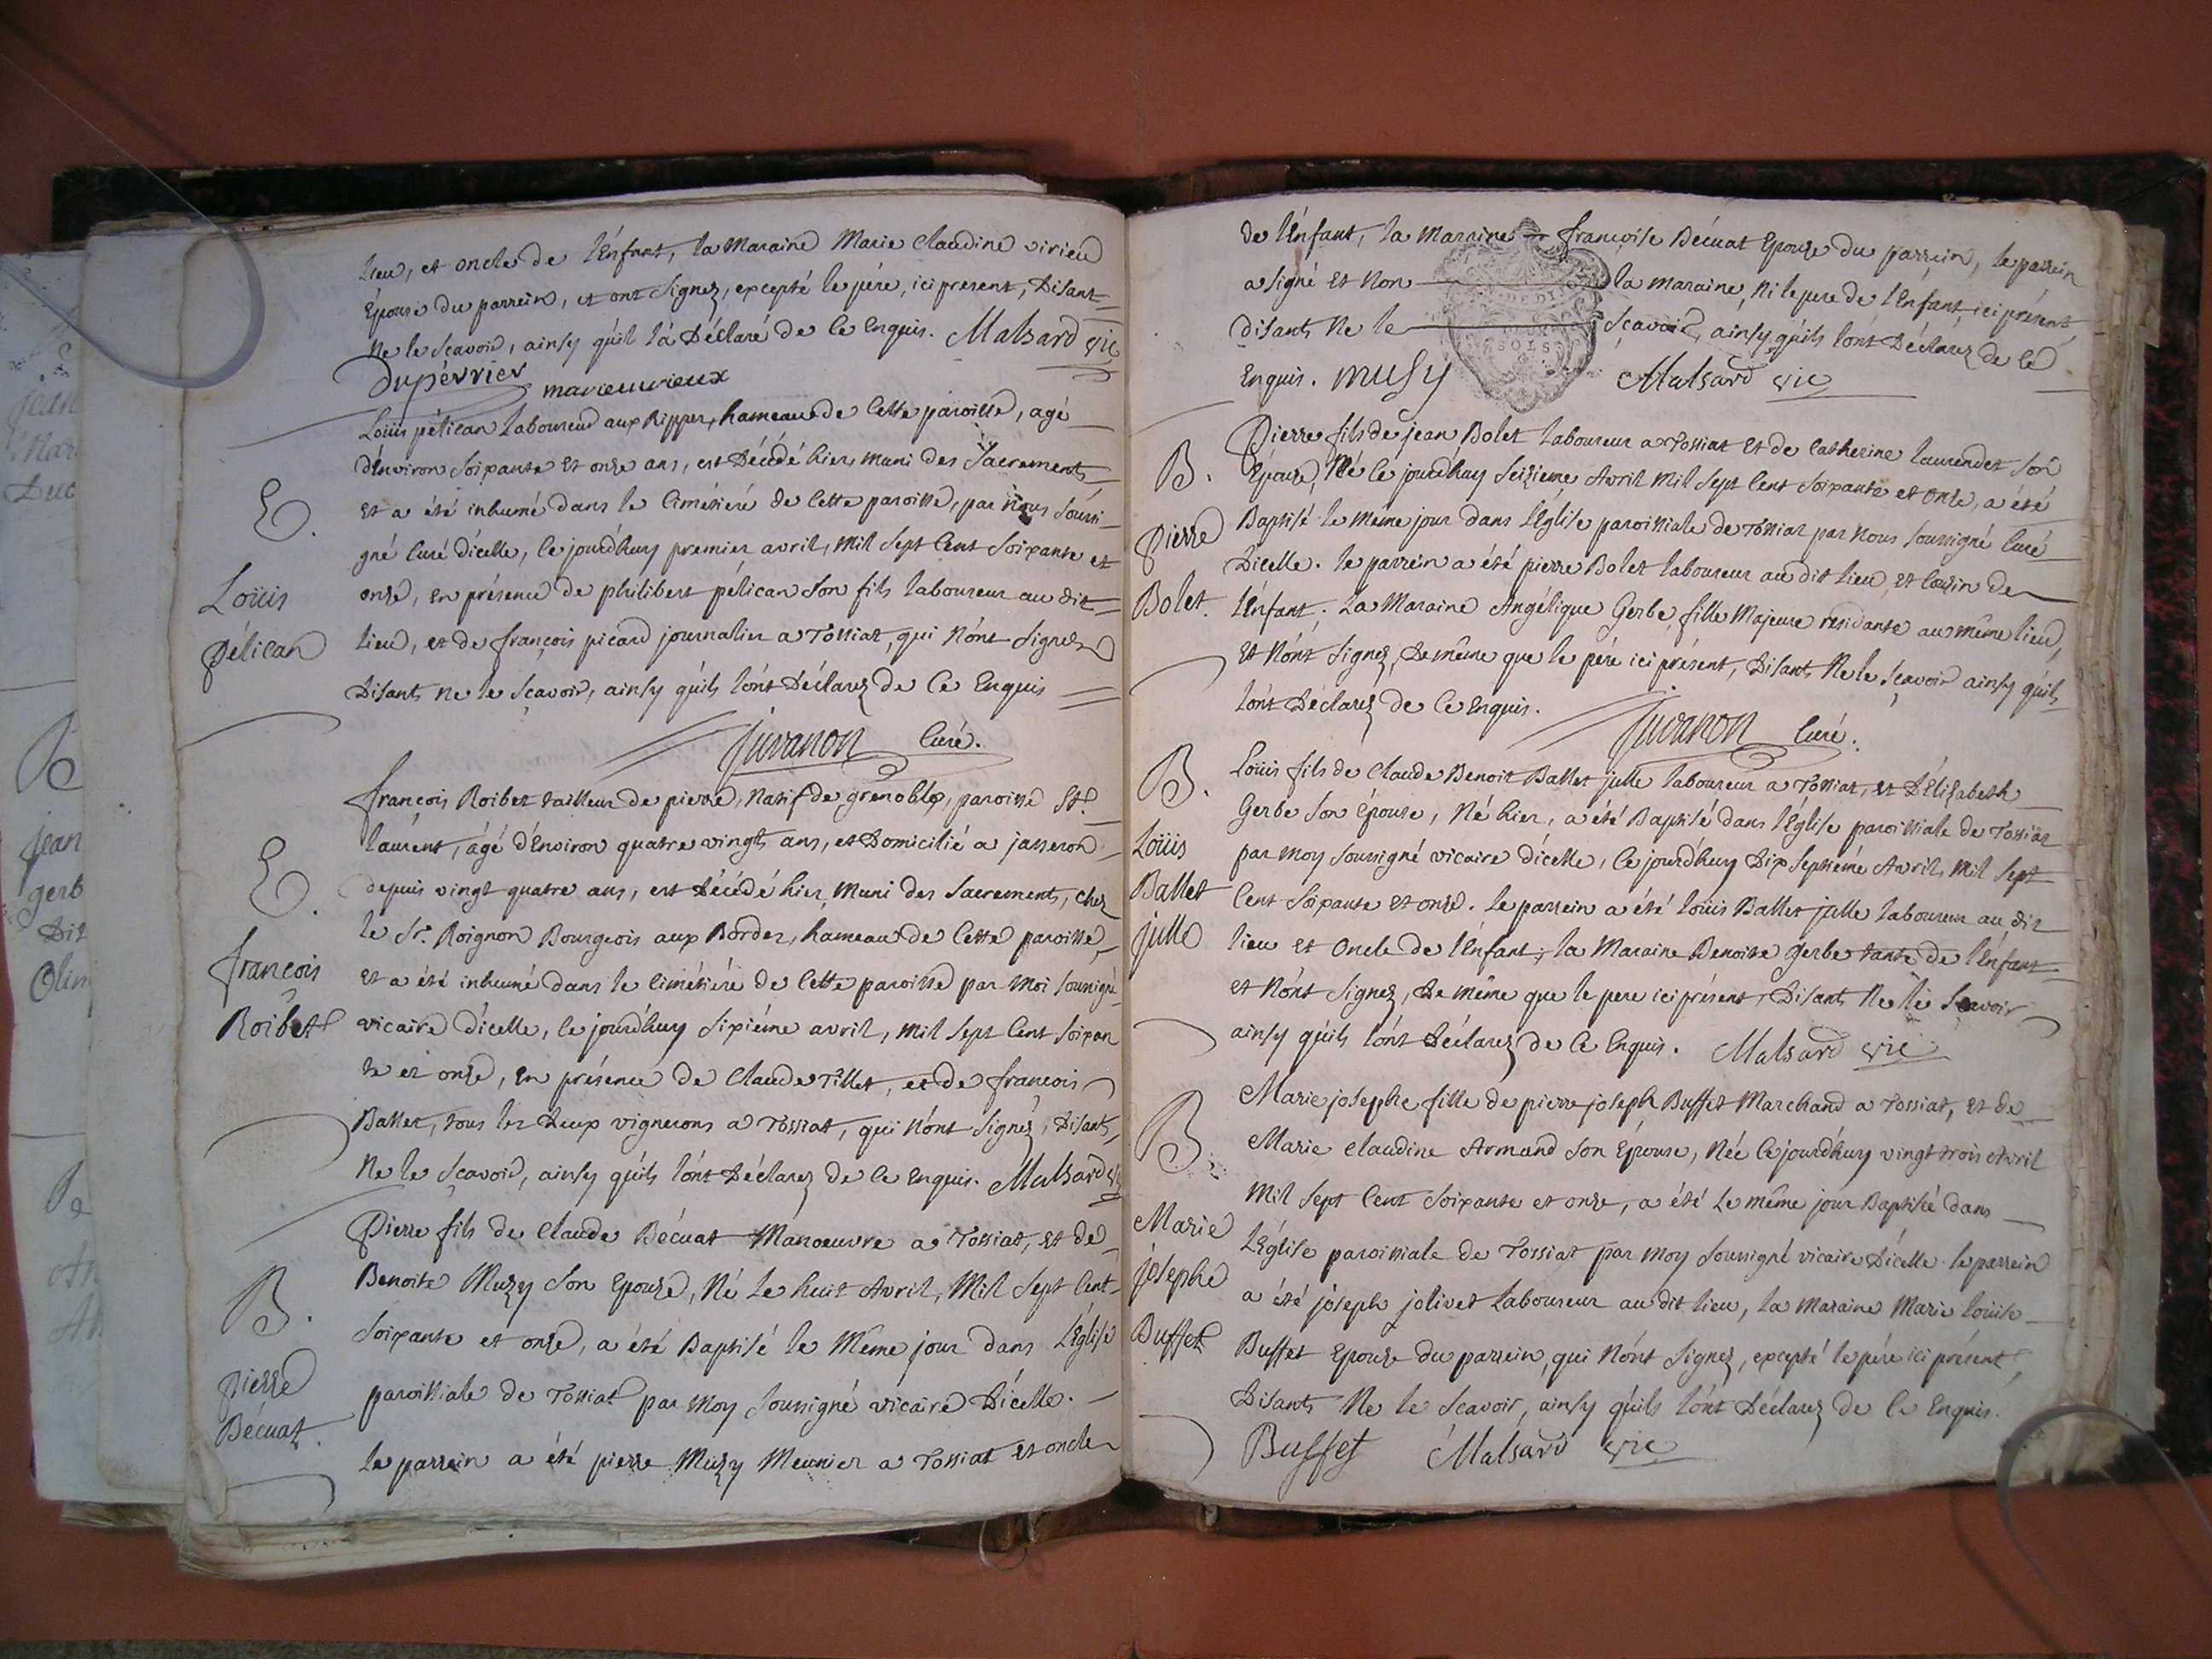 Lieu, et oncle de l'Enfant, la Maraine Marie Claudine virieu
Epouse du parrein, et ont signez, excepté le père, ici present, Disant
Ne le scavoir, ainsy qu'il l'a Déclaré de ce Enquis. Malsard vic
Dupérrier marieuvrieux
E.
Loüis
pélican
Loüis pélican Laboureur aux Rippes, hameau de Cette paroisse, agé
d'Environ soixante et onze ans, est Décédé hier, muni des Sacrements
Et a été inhumé dans le Cimétiére de Cette paroisse, par Nous soussi-
gné Curé d'icelle, ce jourd'huy premier avril, mil sept Cent soixante et
onze, en présence de philibert pélican son fils laboureur au dit
lieu, et de françois picard journalier a Tossiat, qui n'ont signez
Disants ne le sçavoir, ainsy qu'ils l'ont Déclarez de Ce Enquis
juvanon Curé.
E.
françois
Roibet
françois Roibet tailleur de pierre, Natif de grenoble, paroisse St.
laurent, âgé d'Environ quatre vingts ans, et Domicilié a jasseron
depuis vingt quatre ans, est Décédé hier, Muni des Sacrements, chez
le Sr. Roignon Bourgeois aux Bordes, hameau de Cette paroisse,
et a été inhumé dans le Cimétiére de Cette paroisse par Moi soussigné
vicaire d'icelle, le jourd'huy sixiéme avril, mil sept Cent soixan
te et onze, en présence de Claude Tillet, et de françois
Ballet, tous les Deux vignerons a Tossiat, qui n'ont signés, Disants
Ne le sçavoir, ainsy qu'ils l'ont Déclarez de Ce Enquis. Malsard vic
B.
pierre
Bécuat.
Pierre fils de Claude Bécuat Manoeuvre a Tossiat, et de
Benoite Muzy son Epouse, Né le huit Avril, Mil sept Cent
soixante et onze, a été Baptisé le Même jour dans L'Eglise
paroissiale de Tossiat par moy soussigné vicaire D'icelle.
le parrein a été pierre Muzy Meunier a Tossiat et oncle
de l'Enfant, la Maraine françoise Bécuat Epouse du parrein, le parrein
a signé et Non la maraine, Ni le pere de l'Enfant, ici présent
Disants Ne le Sçavoir, ainsy qu'ils l'ont Déclarez de Ce
SOLS
Enquis. musy Malsard vic
B.
pierre
Bolet.
Pierre fils de jean Bolet laboureur a Tossiat et de Catherine laurendet son
Epouse, Né Ce jourd'huy seizieme Avril Mil sept Cent soixante et onze, a été
Baptisé le Même jour dans l'Eglise paroissiale de Tossiat par Nous soussigné Curé
D'icelle. le parrein a été pierre Bolet laboureur au dit lieu, et Cousin de
l'Enfant. La Maraine Angélique Gerbe fille Majeure résidante au même lieu,
Et n'ont signez, De même que le père ici présent, Disants Ne le sçavoir ainsy qu'ils
l'ont Déclarez de Ce Enquis.
juvanon Curé.
B.
Loüis
Ballet
julle
Loüis fils de Claude Benoit Ballet julle laboureur a Tossiat, et D'Elisabeth
Gerbe son Epouse, Né hier, a été Baptisé dans l'Eglise paroissiale de Tossiat
par moy soussigné vicaire d'icelle, Ce jourd'huy Dix septiéme Avril, Mil sept
Cent soixante et onze. le parrein a été loüis Ballet julle laboureur au dit
lieu et Oncle de l'Enfant, la Maraine Benoite Gerbe tante de l'Enfant
et n'ont signez, De même que le pere ici présent, Disants Ne le scavoir
ainsy qu'ils l'ont Déclarez de Ce Enquis. Malsard vic
B
Marie
josephe
Buffet
Marie josephe fille de pierre joseph Buffet Marchand a Tossiat, et de
Marie claudine Armand son Epouse, Née Ce jourd'huy vingt trois Avril
Mil sept Cent soixante et onze, a été Le même jour Baptisée dans
L'Eglise paroissiale de Tossiat par moy soussigné vicaire D'icelle. le parrein
a été joseph jolivet Laboureur au dit lieu, la maraine Marie loüise
Buffet Epouse du parrein, qui n'ont signez, excepté le père ici présent,
Disants Ne le scavoir, ainsy qu'ils l'ont Déclarez de Ce Enquis.
Buffet Malsard vic